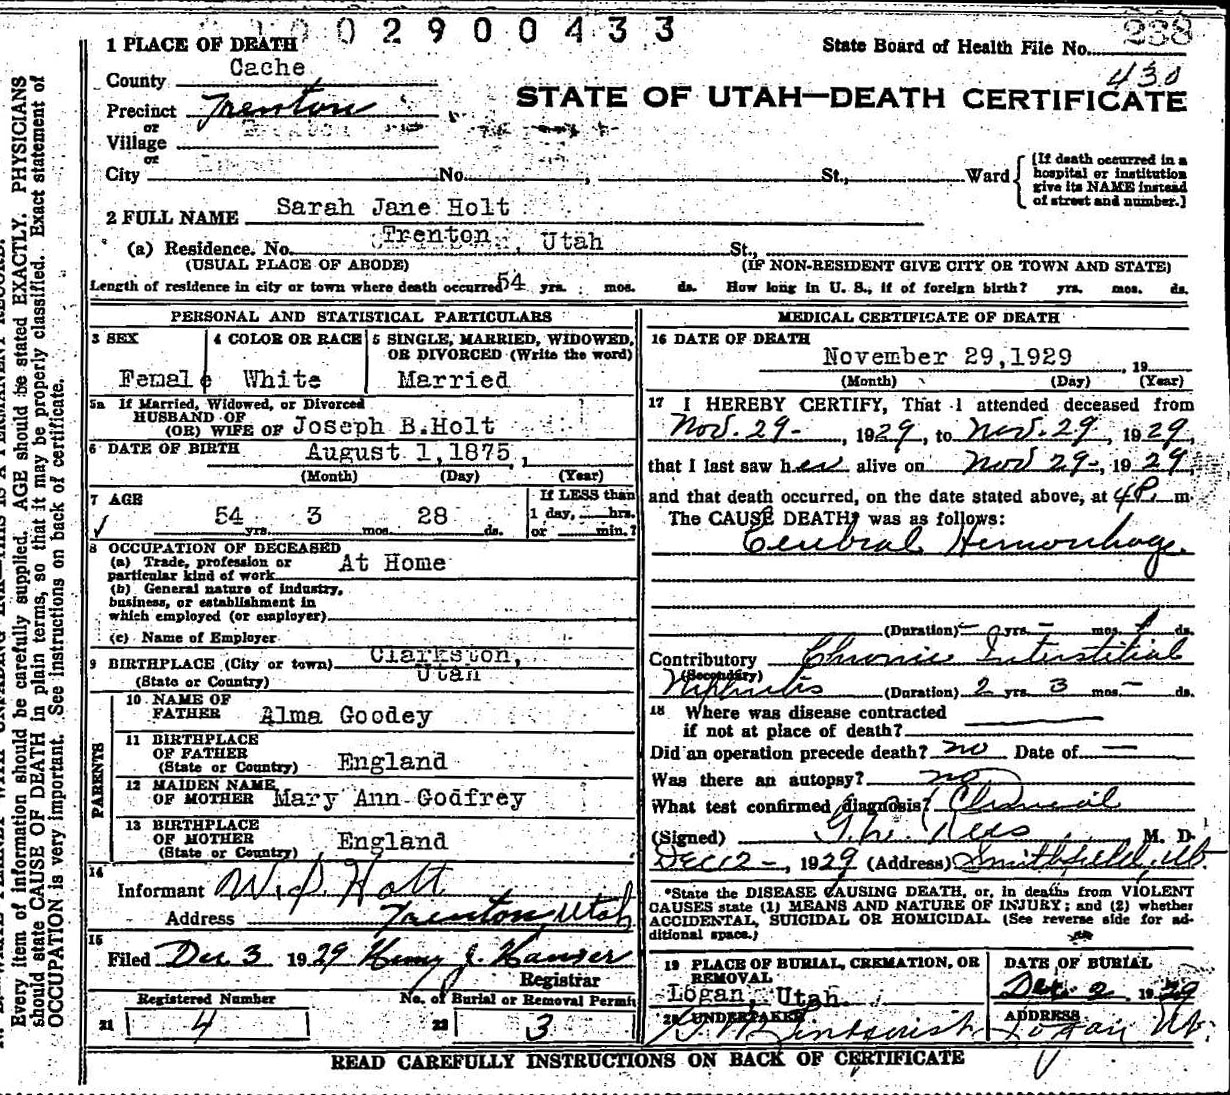 002900433
238
1 PLACE OF DEATH
State Board of Health File No.
430
County Cache
STATE OF UTAH—DEATH CERTIFICATE
Precinct Trenton
or
Village
or
City No. , St., Ward
[If death occurred in a
hospital or institution
give its NAME instead
of street and number.]
2 FULL NAME Sarah Jane Holt
(a) Residence. No. Trenton, Utah St.,
(USUAL PLACE OF ABODE) (IF NON-RESIDENT GIVE CITY OR TOWN AND STATE)
Length of residence in city or town where death occurred 54 yrs. mos. ds. How long in U. S., if of foreign birth? yrs. mos. ds.
PERSONAL AND STATISTICAL PARTICULARS
3 SEX 4 COLOR OR RACE 5 SINGLE, MARRIED, WIDOWED,
OR DIVORCED (Write the word)
Female White Married
5a If Married, Widowed, or Divorced
HUSBAND OF
(OR) WIFE OF Joseph B.Holt
6 DATE OF BIRTH August 1,1875,
(Month) (Day) (Year)
7 AGE If LESS than
54 yrs. 3 mos. 28 ds. 1 day, hrs.
or min.?
8 OCCUPATION OF DECEASED
(a) Trade, profession or
particular kind of work At Home
(b) General nature of industry,
business, or establishment in
which employed (or employer)
(c) Name of Employer
9 BIRTHPLACE (City or town) Clarkston,
(State or Country) Utah
PARENTS
10 NAME OF
FATHER Alma Goodey
11 BIRTHPLACE
OF FATHER England
(State or Country)
12 MAIDEN NAME
OF MOTHER Mary Ann Godfrey
13 BIRTHPLACE
OF MOTHER England
(State or Country)
14
Informant W. J. Holt
Address Trenton, Utah
15
Filed Dec 3 1929 Henry J. Hanser
Registrar
Registered Number No. of Burial or Removal Permit
21 4 22 3
MEDICAL CERTIFICATE OF DEATH
16 DATE OF DEATH
November 29,1929 , 19
(Month) (Day) (Year)
17 I HEREBY CERTIFY, That I attended deceased from
Nov. 29-, 1929, to Nov. 29, 1929,
that I last saw her alive on Nov 29-, 1929,
and that death occurred, on the date stated above, at 4P. m.
The CAUSE DEATH* was as follows:
Cerebral Hemorrhage
(Duration) - yrs. - mos. 1 ds.
Contributory Chronic Interstitial
(Secondary)
Nephritis (Duration) 2 yrs. 3 mos. - ds.
18 Where was disease contracted
if not at place of death?
Did an operation precede death? no Date of —
Was there an autopsy? no
What test confirmed diagnosis? Clinical
(Signed) G.W. Rees M. D.
Dec 2-, 1929 (Address) Smithfield, Ut-
*State the DISEASE CAUSING DEATH, or, in deaths from VIOLENT
CAUSES state (1) MEANS AND NATURE OF INJURY; and (2) whether
ACCIDENTAL, SUICIDAL OR HOMICIDAL. (See reverse side for ad-
ditional space.)
19 PLACE OF BURIAL, CREMATION, OR
REMOVAL
Logan, Utah.
DATE OF BURIAL
Dec. 2 1929
20 UNDERTAKER
Lindquist
ADDRESS
Logan Ut.
READ CAREFULLY INSTRUCTIONS ON BACK OF CERTIFICATE
Every item of information should be carefully supplied. AGE should be stated EXACTLY. PHYSICIANS
should state CAUSE OF DEATH in plain terms, so that it may be properly classified. Exact statement of
OCCUPATION is very important. See instructions on back of certificate.